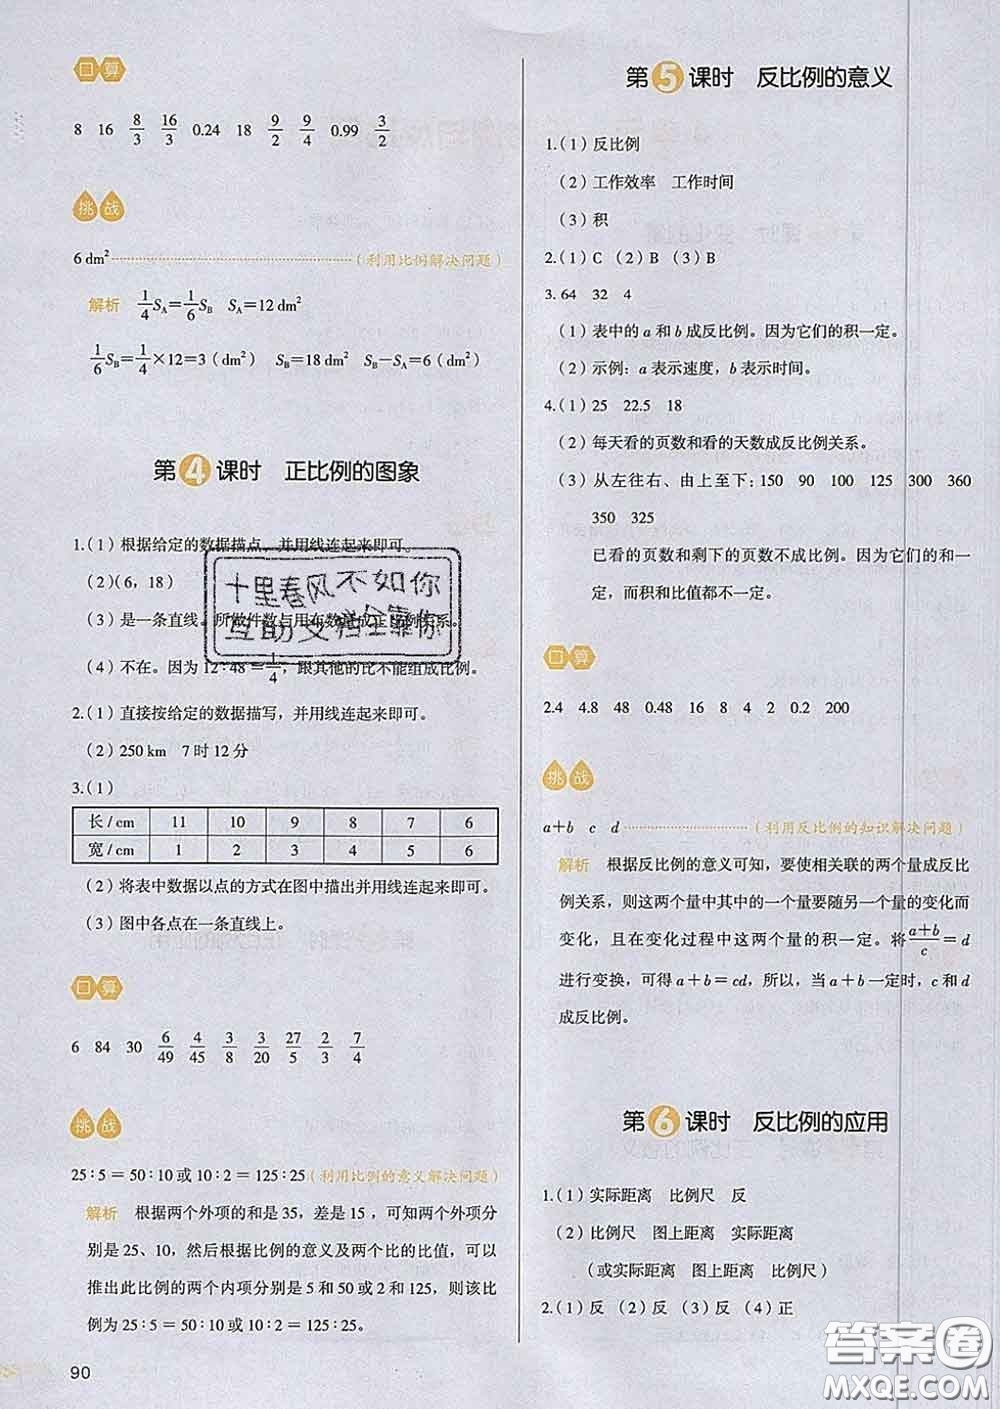 口算
8 16 8/3 16/3 0.24 18 9/2 9/4 0.99 3/2
挑战
6 dm²（利用比例解决问题）
解析 1/4 S_A=1/6 S_B S_A=12 dm²
1/6 S_B=1/4×12=3（dm²） S_B=18 dm² S_B-S_A=6（dm²）
第4课时 正比例的图象
1.（1）根据给定的数据描点，并用线连起来即可。
（2）(6，18)
（3）是一条直线。所做件数与用布数量成正比例关系。
（4）不在。因为12∶48=1/4，跟其他的比不能组成比例。
2.（1）直接按给定的数据描写，并用线连起来即可。
（2）250 km 7时12分
3.（1）
长/cm 11 10 9 8 7 6
宽/cm 1 2 3 4 5 6
（2）将表中数据以点的方式在图中描出并用线连起来即可。
（3）图中各点在一条直线上。
口算
6 84 30 6/49 4/45 3/8 3/20 27/5 2/3 7/4
挑战
25∶5=50∶10或10∶2=125∶25（利用比例的意义解决问题）
解析 根据两个外项的和是35，差是15，可知两个外项分
别是25、10，然后根据比例的意义及两个比的比值，可以
推出此比例的两个内项分别是5和50或2和125，则该比
例为25∶5=50∶10或10∶2=125∶25。
90
第5课时 反比例的意义
1.（1）反比例
（2）工作效率 工作时间
（3）积
2.（1）C （2）B （3）B
3. 64 32 4
（1）表中的a和b成反比例。因为它们的积一定。
（2）示例：a表示速度，b表示时间。
4.（1）25 22.5 18
（2）每天看的页数和看的天数成反比例关系。
（3）从左往右、由上至下：150 90 100 125 300 360
350 325
已看的页数和剩下的页数不成比例。因为它们的和一
定，而积和比值都不一定。
口算
2.4 4.8 48 0.48 16 8 4 2 0.2 200
挑战
a+b c d（利用反比例的知识解决问题）
解析 根据反比例的意义可知，要使相关联的两个量成反比
例关系，则这两个量中其中的一个量要随另一个量的变化而
变化，且在变化过程中这两个量的积一定。将(a+b)/c=d
进行变换，可得a+b=cd，所以，当a+b一定时，c和d
成反比例。
第6课时 反比例的应用
1.（1）实际距离 比例尺 反
（2）比例尺 图上距离 实际距离
（或实际距离 图上距离 比例尺）
2.（1）反 （2）反 （3）反 （4）正
十里春风不如你
互助文档全靠你
答案圈
MXQE.COM